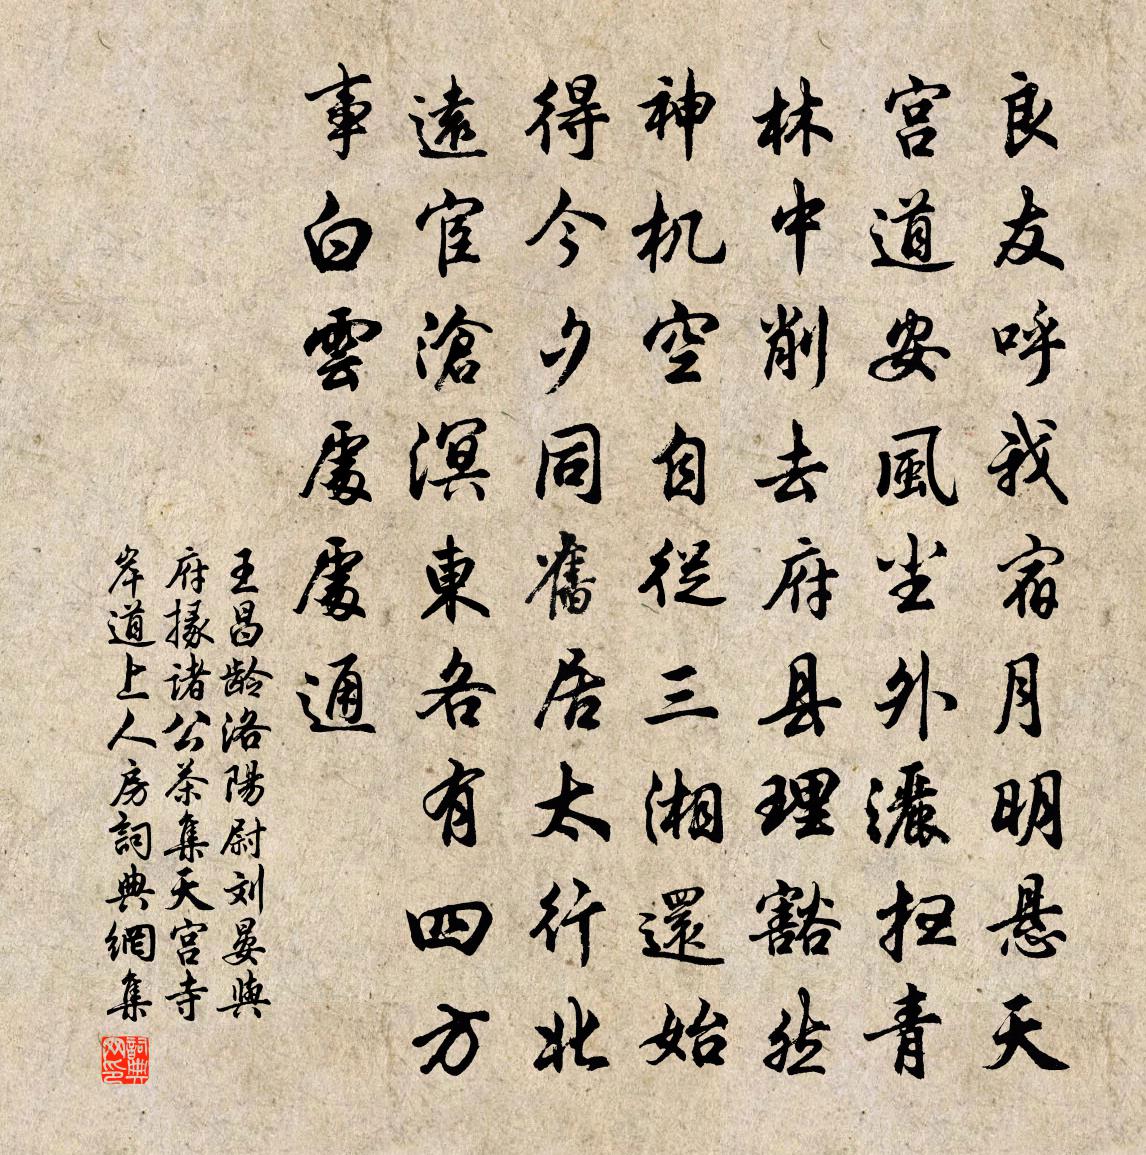 良友呼我宿月明悬天
宫道安風尘外灑扫青
林中削去府县理豁然
神机空自從三湘還始
得今夕同舊居太行北
遠宦滄溟東各有四方
事白雲處處通
王昌龄洛陽尉刘晏與
府掾诸公茶集天宫寺
岸道上人房詞典網集
詞典
网印